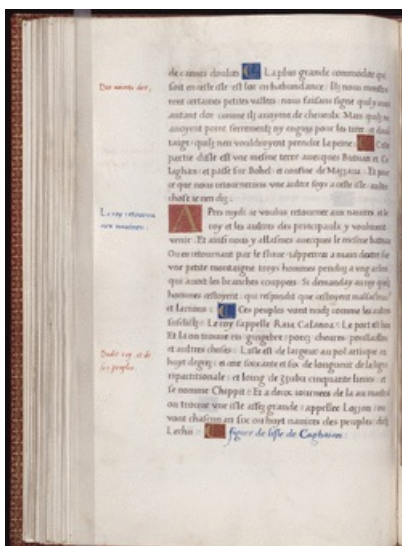 de cannes doulces La plus grande commodite qui
soit en ceste isle est lor en habundance : Ilz nous monstre
rent certaines petites vallees : nous faisans signe quil y avoit
autant dor comme ilz avoyent de cheveulx Mais quilz ne
avoyent point ferrementz ny engins pour les tirer et davā
taige : quilz nen vouldroyent prendre la peine Ceste
partie disle est vne mesme terre avecques Butuan et Ca
laghan : et passe sur Bohol : et confine de Mazzaua : Et pour
ce que nous retournerons vne aultre foys a ceste isle : aultre
chose ie nen diz :
Des mines dor,
Le roy retourna
aux nauires :
APres mydi ie voulus retourner aux nauires et le
roy et les autres des principaulx y voulurent
venir : Et ainsi nous y allasmes avecques le mesme balan
Ou en retournant par le fleuve : iapperceu a main dextre sur
vne petite montaigne troys hommes penduz a vng arbre
qui avoit les branches couppees : Si demanday au roy quelz
hommes cestoyent : qui respondit que cestoyent malfacteurs
et larrons : Ces peuples vont nudz comme les autres
susdictz : Le roy sappelle Raia Calanoa : Le port est bon
Et la on trouve riz gingebre : porcz chevres poullailles
et autres choses : Lisle est de largeur au pol artique en
huyt degrez : et cent soixante et six de longueur de la ligne
repartitionale : et loing de cinquante lieues : et
se nomme Chippit : Et a deux iournees de la au maestral
on trouve vne isle assez grande : appellee Lozzon : ou
vont chascun an six ou huyt nauires des peuples dictz
Lechii : figure de lisle de Caghaian :
Dudit roy et de
ses peuples.